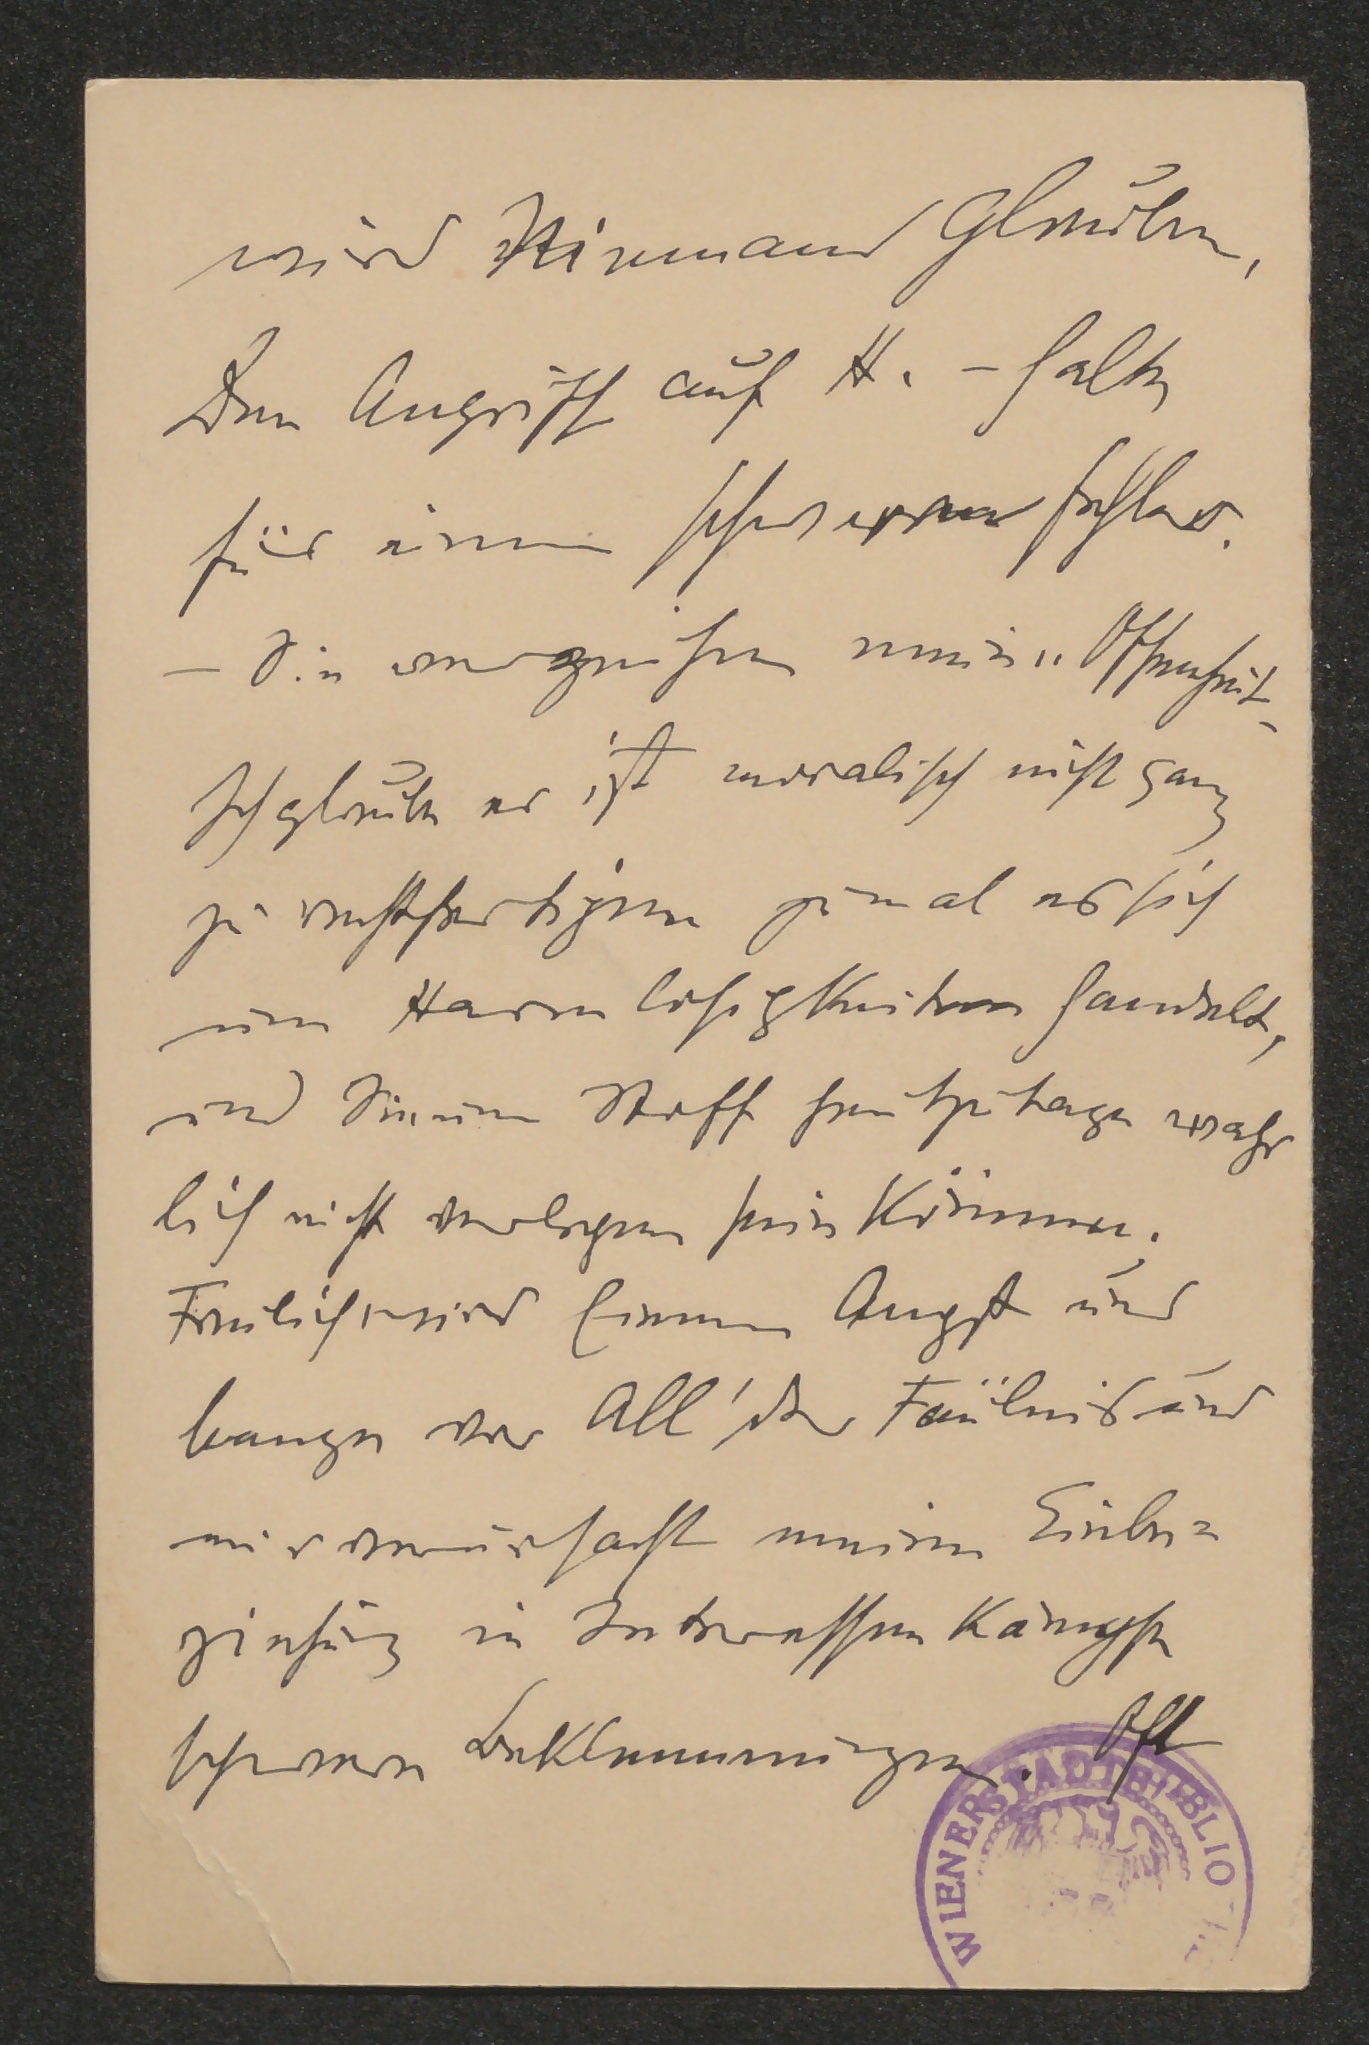 wird Niemand glauben,
Den Angriff auf H. – halte
für einen schweren Fehler.
– Sie verzeihen meine Offenheit –
Ich glaube er ist moralisch nicht ganz
zu rechtfertigen zumal es sich
um Harmlosigkeiten handelt,
und Sie um Stoff heutzutage wahr
lich nicht verlegen sein können.
Freilich wird Einem Angst und
bange vor All' der Fäulnis und
mir verursacht meine Einbe=
ziehung in Interessenkämpfe
schwere Beklemmungen. Oft
WIENER STADTBIBLIO